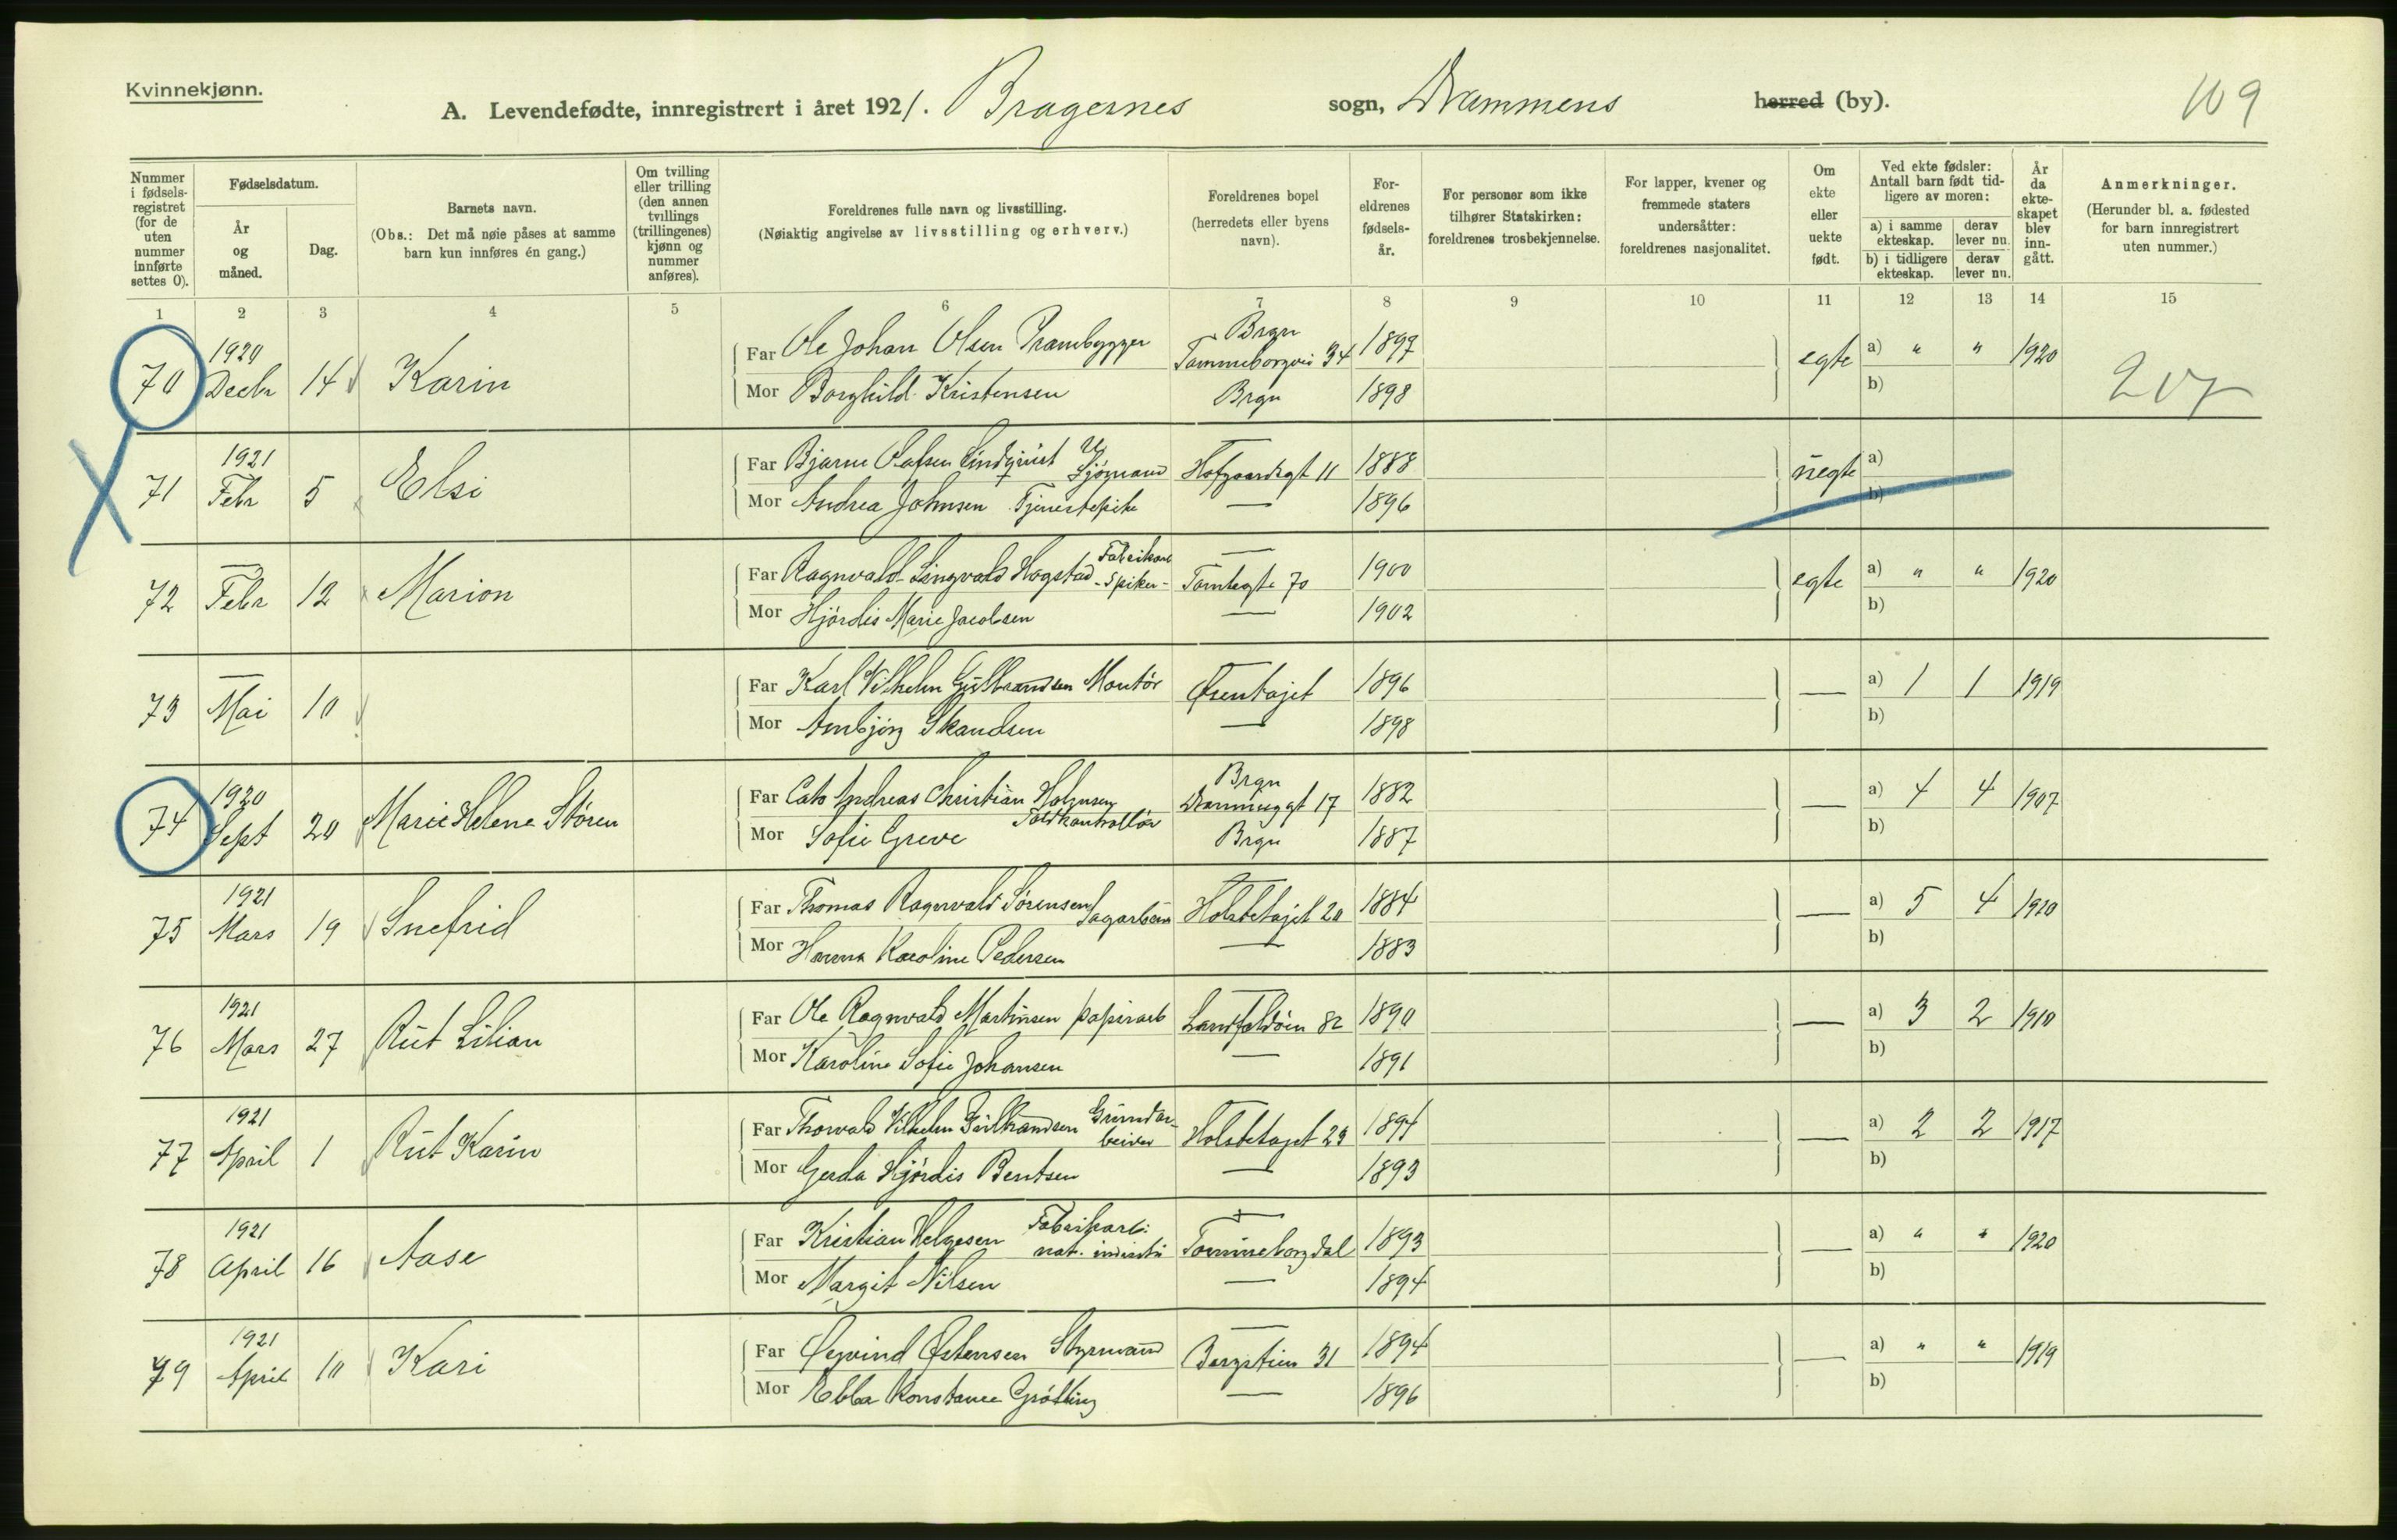 Kvinnekjønn.
A. Levendefødte, innregistrert i året 1921. Bragernes sogn, Drammens herred (by).
109
Nummer i fødselsregistret (for de uten nummer innførte settes 0).
Fødselsdatum.
År og måned.
Dag.
Barnets navn.
(Obs.: Det må nøie påses at samme barn kun innføres én gang.)
Om tvilling eller trilling (den annen tvillings (trillingenes) kjønn og nummer anføres).
Foreldrenes fulle navn og livsstilling.
(Nøiaktig angivelse av livsstilling og erhverv.)
Foreldrenes bopel
(herredets eller byens navn).
Foreldrenes fødselsår.
For personer som ikke tilhører Statskirken: foreldrenes trosbekjennelse.
For lapper, kvener og fremmede staters undersåtter: foreldrenes nasjonalitet.
Om ekte eller uekte født.
Ved ekte fødsler: Antall barn født tidligere av moren:
a) i samme ekteskap.
derav lever nu.
b) i tidligere ekteskap.
derav lever nu.
År da ekteskapet blev inngått.
Anmerkninger.
(Herunder bl. a. fødested for barn innregistrert uten nummer.)
1 2 3 4 5 6 7 8 9 10 11 12 13 14 15
70 1920 Decbr 14 Karin Far Ole Johan Olsen Prambygger Brgn Tømmeborgvei 34 1897 egte a) " " 1920
Mor Borghild Kristensen Brgn 1898 b) 207
71 1921 Febr 5 Elsi Far Bjarne Olafsen Lindqvist U Sjømand Hofgaardsgt 11 1888 uegte a)
Mor Andrea Johnsen Tjenestepike — 1896 b)
72 — Febr 12 Marion Far Ragnvald Lingvald Hogstad Fabrikarb - Spiker - — Tomtegte 70 1900 egte a) " " 1920
Mor Hjørdis Marie Jacobsen — 1902 b)
73 — Mai 10 Far Karl Vilhelm Gulbrandsen Montør Øren 1896 — a) 1 1 1919
Mor Arnbjørg Skandsen — 1898 b)
74 1920 Sept 20 Marie Helene Støren Far Cato Andreas Christian Toldkontrollør Brgn 17 1882 — a) 4 4 1907
Mor Sofie Greve Brgn 1887 b)
75 1921 Mars 19 Snefrid Far Thomas Ragnvald Sørensen Sagarbeid — 20 1884 — a) 5 4 1910
Mor Hanna Karoline Pedersen — 1883 b)
76 1921 Mars 27 Rut Lilian Far Ole Ragnvald Martinsen papirarb — Landfaldøen 82 1890 — a) 3 2 1910
Mor Karoline Sofie Johansen — 1891 b)
77 1921 April 1 Rut Karin Far Thorvald Vilhelm Gulbrandsen Grundarbeider 23 1894 — a) 2 2 1917
Mor Gerda Hjørdis Bentsen — 1893 b)
78 1921 April 16 Aase Far Kristian Helgesen Fabrikarb: nat. industri Tømmeborgdal 1893 — a) " " 1920
Mor Margit Nilsen — 1894 b)
79 1921 April 10 Kari Far Øyvind Østensen Styrmand — Bergstien 31 1894 — a) " " 1919
Mor Ebba Konstance Grøtting — 1896 b)